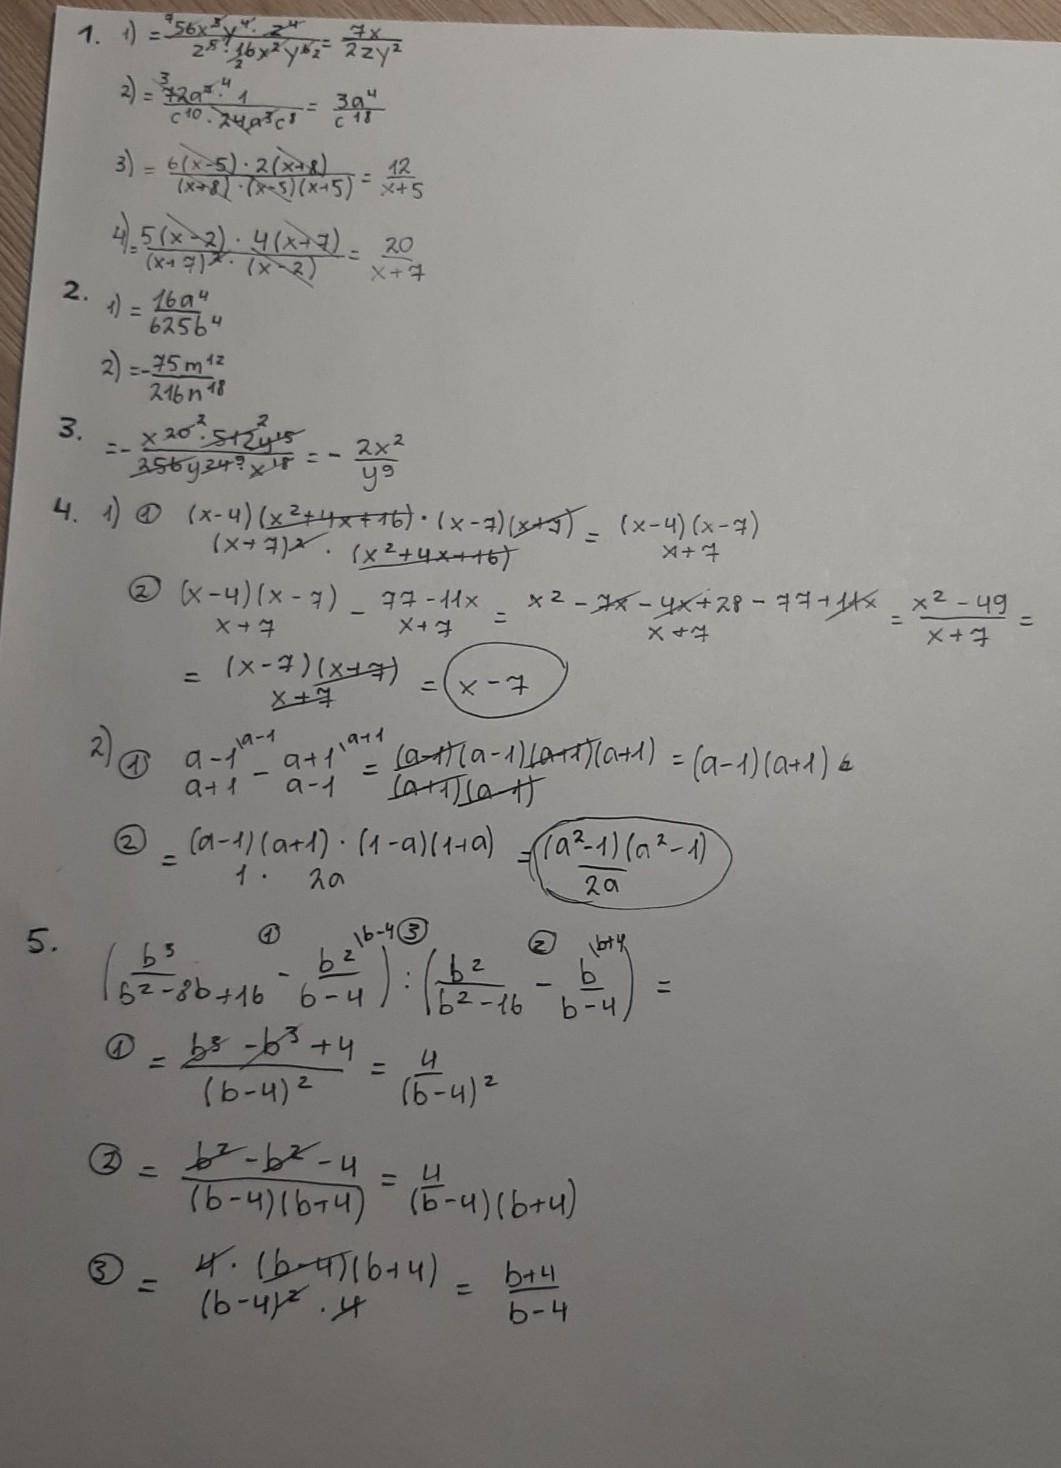 1. 1) = 56x³y⁴ · z⁴ / z⁵ · 16x²y⁶ = 7x / 2zy²
2) = 72a⁷ · 1 / c¹⁰ · 24a³c⁸ = 3a⁴ / c¹⁸
3) = 6(x-5) · 2(x+8) / (x+8) · (x-5)(x+5) = 12 / x+5
4) = 5(x-2) · 4(x+7) / (x+7)² · (x-2) = 20 / x+7
2. 1) = 16a⁴ / 625b⁴
2) = - 75m¹² / 216n¹⁸
3. = - x²⁰ · 512y¹⁵ / 256y²⁴ · x¹⁸ = - 2x² / y⁹
4. 1) ① (x-4)(x²+4x+16) · (x-7)(x+7) / (x+7)² · (x²+4x+16) = (x-4)(x-7) / x+7
② (x-4)(x-7) / x+7 - 77-11x / x+7 = x² - 7x - 4x + 28 - 77 + 11x / x+7 = x² - 49 / x+7 =
= (x-7)(x+7) / x+7 = x-7
2) ① a-1 \a-1 / a+1 - a+1 \a+1 / a-1 = (a-1)(a-1)(a+1)(a+1) / (a+1)(a-1) = (a-1)(a+1)
② = (a-1)(a+1) · (1-a)(1+a) / 1 · 2a = (a²-1)(a²-1) / 2a
5. ( b³ / b²-8b+16 ① - b² \b-4 / b-4 ) ③ : ( b² / b²-16 ② - b \b+4 / b-4 ) =
① = b³ - b³ + 4 / (b-4)² = 4 / (b-4)²
② = b² - b² - 4 / (b-4)(b+4) = 4 / (b-4)(b+4)
③ = 4 · (b-4)(b+4) / (b-4)² · 4 = b+4 / b-4